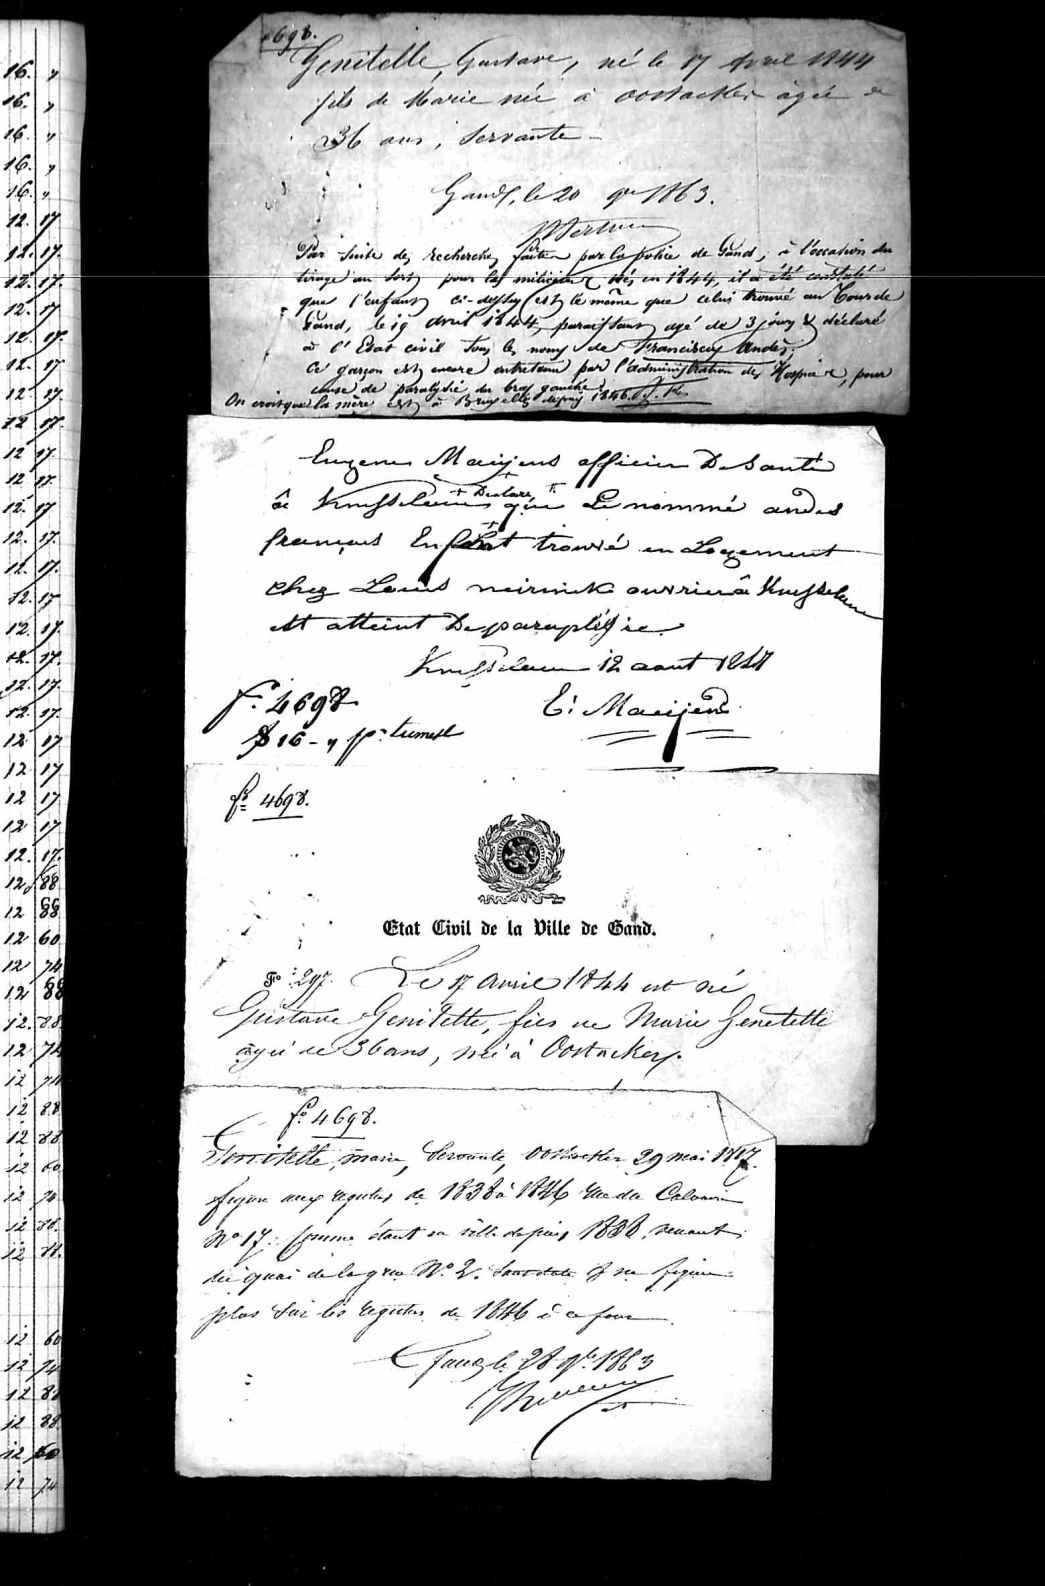 4698.
Genitelle, Gustave, né le 17 Avril 1844
fils de Marie née à Oostacker agée de
36 ans, Servante
Gand, le 20 9bre 1863.
Par suite des recherches faites par la police de Gand, à l'occasion du
tirage au sort pour les miliciens nés en 1844, il a été constaté
que l'enfant ci-dessus est le même que celui trouvé au Tour de
Gand, le 19 avril 1844, paraissant agé de 3 jours & déclaré
à l'Etat civil sous les noms de Franciscus Andes.
Ce garçon est encore entretenu par l'administration des Hospices, pour
cause de paralysie du bras gauche.
On croit que la mère est à Bruxelles depuis 1846.
Eugene Maeijens officier De Santé
à Knesselaere Declare que Le nommé andes
françois Enfant trouvé en Logement
chez Louis neirinck ouvrier à Knesselaere
est atteint De paraplégie.
Knesselaere 12 aout 1857
E: Maeijens
fo. 4698
16 - " pr. trimest
fo 4698.
Etat Civil de la Ville de Gand.
Fo 297. Le 17 Avril 1844 est né
Gustave Genitelle, fils de Marie Genetelle
agée de 36 ans, née à Oostacker.
fo. 4698.
Genitelle, marie, Servante, Oostacker 29 mai 1807.
figure aux registres de 1838 à 1846 rue du Calvaire
No 17. comme étant en ville depuis 1838, venant
du quai de la grue No 2. et ne figure
plus sur les registres de 1846 à ce jour
Gand, le 28 9bre 1863
16. "
16. "
16. "
16. "
16. "
12. 17
12. 17.
12. 17.
12. 17
12. 17.
12. 17
12. 17
12 17
12 17.
12 17
12. 17
12. 17.
12. 17
12. 17
12. 17.
12. 17.
12. 17.
12. 17.
12 17
12 17
12 17
12 17
12. 17.
12. 88
12 88
12 60
12 74
12 88
12. 88
12 74
12 74
12 88
12 88
12 60
12 74
12 88.
12 88.
12 60
12 74
12 88
12 88
12 60
12 74